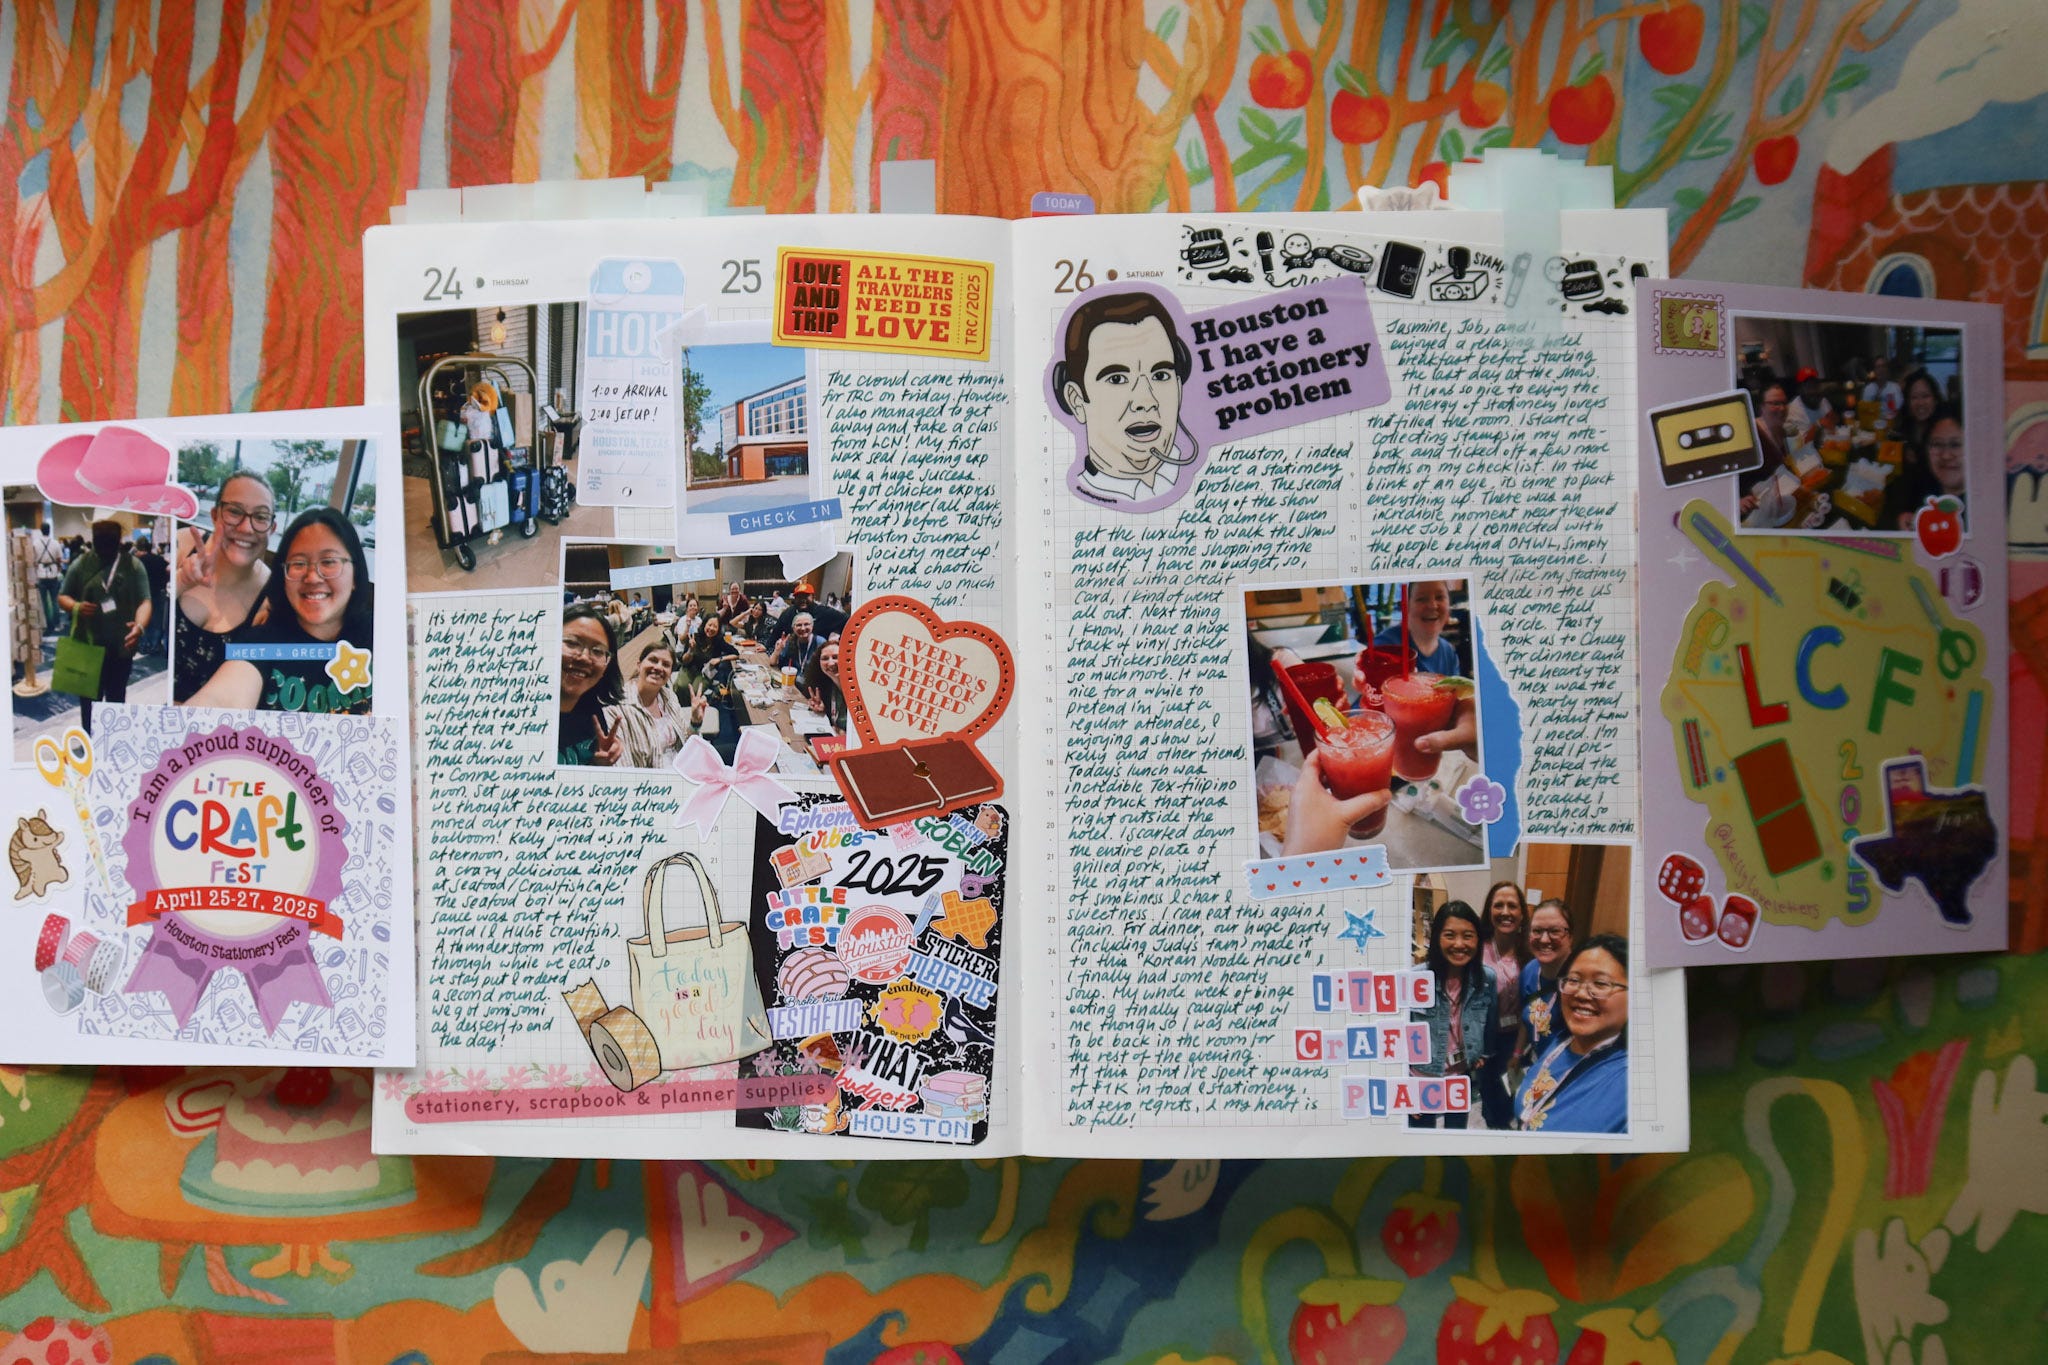 MEET & GREET
I am a proud supporter of
LiTTLE
CRAFT
FEST
April 25-27, 2025
Houston Stationery Fest
24
THURSDAY
HOU
HOU
1:00 ARRIVAL
2:00 SET UP!
HOUSTON, TEXAS
CHECK IN
BESTIES
It's time for LCF
baby! We had
an early start
with Breakfast
Klub, nothing like
hearty fried chicken
w/ french toast &
sweet tea to start
the day. We
made our way N
to Conroe around
noon. Set up was less scary than
we thought because they already
moved our two pallets into the
ballroom! Kelly joined us in the
afternoon, and we enjoyed
a crazy delicious dinner
at Seafood/Crawfish Cafe!
The seafood boil w/ cajun
sauce was out of this
world (& HUGE crawfish).
A thunderstorm rolled
through while we eat so
we stay put & ordered
a second round.
We got som som
as dessert to end
the day!
25
LOVE
AND
TRIP
ALL THE
TRAVELERS
NEED IS
LOVE
TRC/2025
The crowd came through
for TRC on Friday. However,
I also managed to get
away and take a class
from LCN! My first
wax seal layering exp
was a huge success.
We got chicken express
for dinner (all dark
meat) before Toasty's
Houston Journal
Society meet up!
It was chaotic
but also so much
fun!
EVERY
TRAVELER'S
NOTEBOOK
IS FILLED
WITH
LOVE!
TRC
today
is a
good
day
stationery, scrapbook & planner supplies
Ephemera
vibes
WASHI
GOBLIN
2025
LITTLE
CRAFT
FEST
Houston
STICKER
MAGPIE
enabler
OF THE DAY
Broke but
AESTHETIC
WHAT
budget?
HOUSTON
106
TODAY
26
SATURDAY
ink
STAMP
ink
Houston
I have a
stationery
problem
Houston, I indeed
have a stationery
problem. The second
day of the show
feels calmer. I even
get the luxury to walk the show
and enjoy some shopping time
myself. I have no budget, so,
armed with a credit
card, I kind of went
all out. Next thing
I know, I have a huge
stack of vinyl sticker
and sticker sheets and
so much more. It was
nice for a while to
pretend I'm just a
regular attendee, &
enjoying a show w/
Kelly and other friends.
Today's lunch was
incredible Tex-filipino
food truck that was
right outside the
hotel. I scarfed down
the entire plate of
grilled pork, just
the right amount
of smokiness & char &
sweetness. I can eat this again &
again. For dinner, our huge party
(including Judy's fam) made it
to this "Korean Noodle House" &
I finally had some hearty
soup. My whole week of binge
eating finally caught up w/
me though so I was relieved
to be back in the room for
the rest of the evening.
At this point I've spent upwards
of $1K in food & stationery,
but zero regrets, & my heart is
so full!
Jasmine, Job, and I
enjoyed a relaxing hotel
breakfast before starting
the last day at the show.
It was so nice to enjoy the
energy of stationery lovers
that filled the room. I started
collecting stamps in my note-
book and ticked off a few more
booths on my checklist. In the
blink of an eye, its time to pack
everything up. There was an
incredible moment near the end
where Job & I connected with
the people behind OMWL, Simply
Gilded, and Amy Tangerine. I
feel like my stationery
decade in the US
has come full
circle. Toasty
took us to Chuey
for dinner and
the hearty tex
mex was the
hearty meal
I didn't know
I need. I'm
glad I pre-
packed the
night before
because I
crashed so
early in the night.
LiTTLE
CRAFT
PLACE
107
LCF
2025
@kellyloveletters